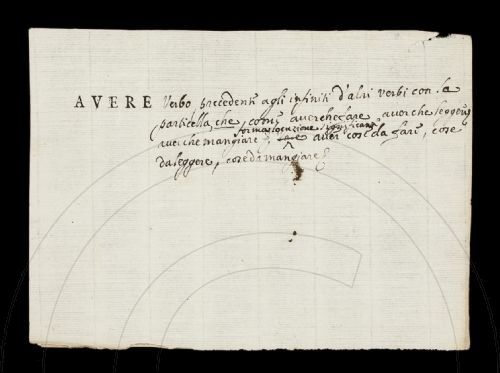 AVERE Verbo precedente agli infiniti d'altri verbi con la
particella che, come aver che fare aver che leggere
forma locuzione significante
aver che mangiare, aver cose da fare, cose
da leggere, cose da mangiare